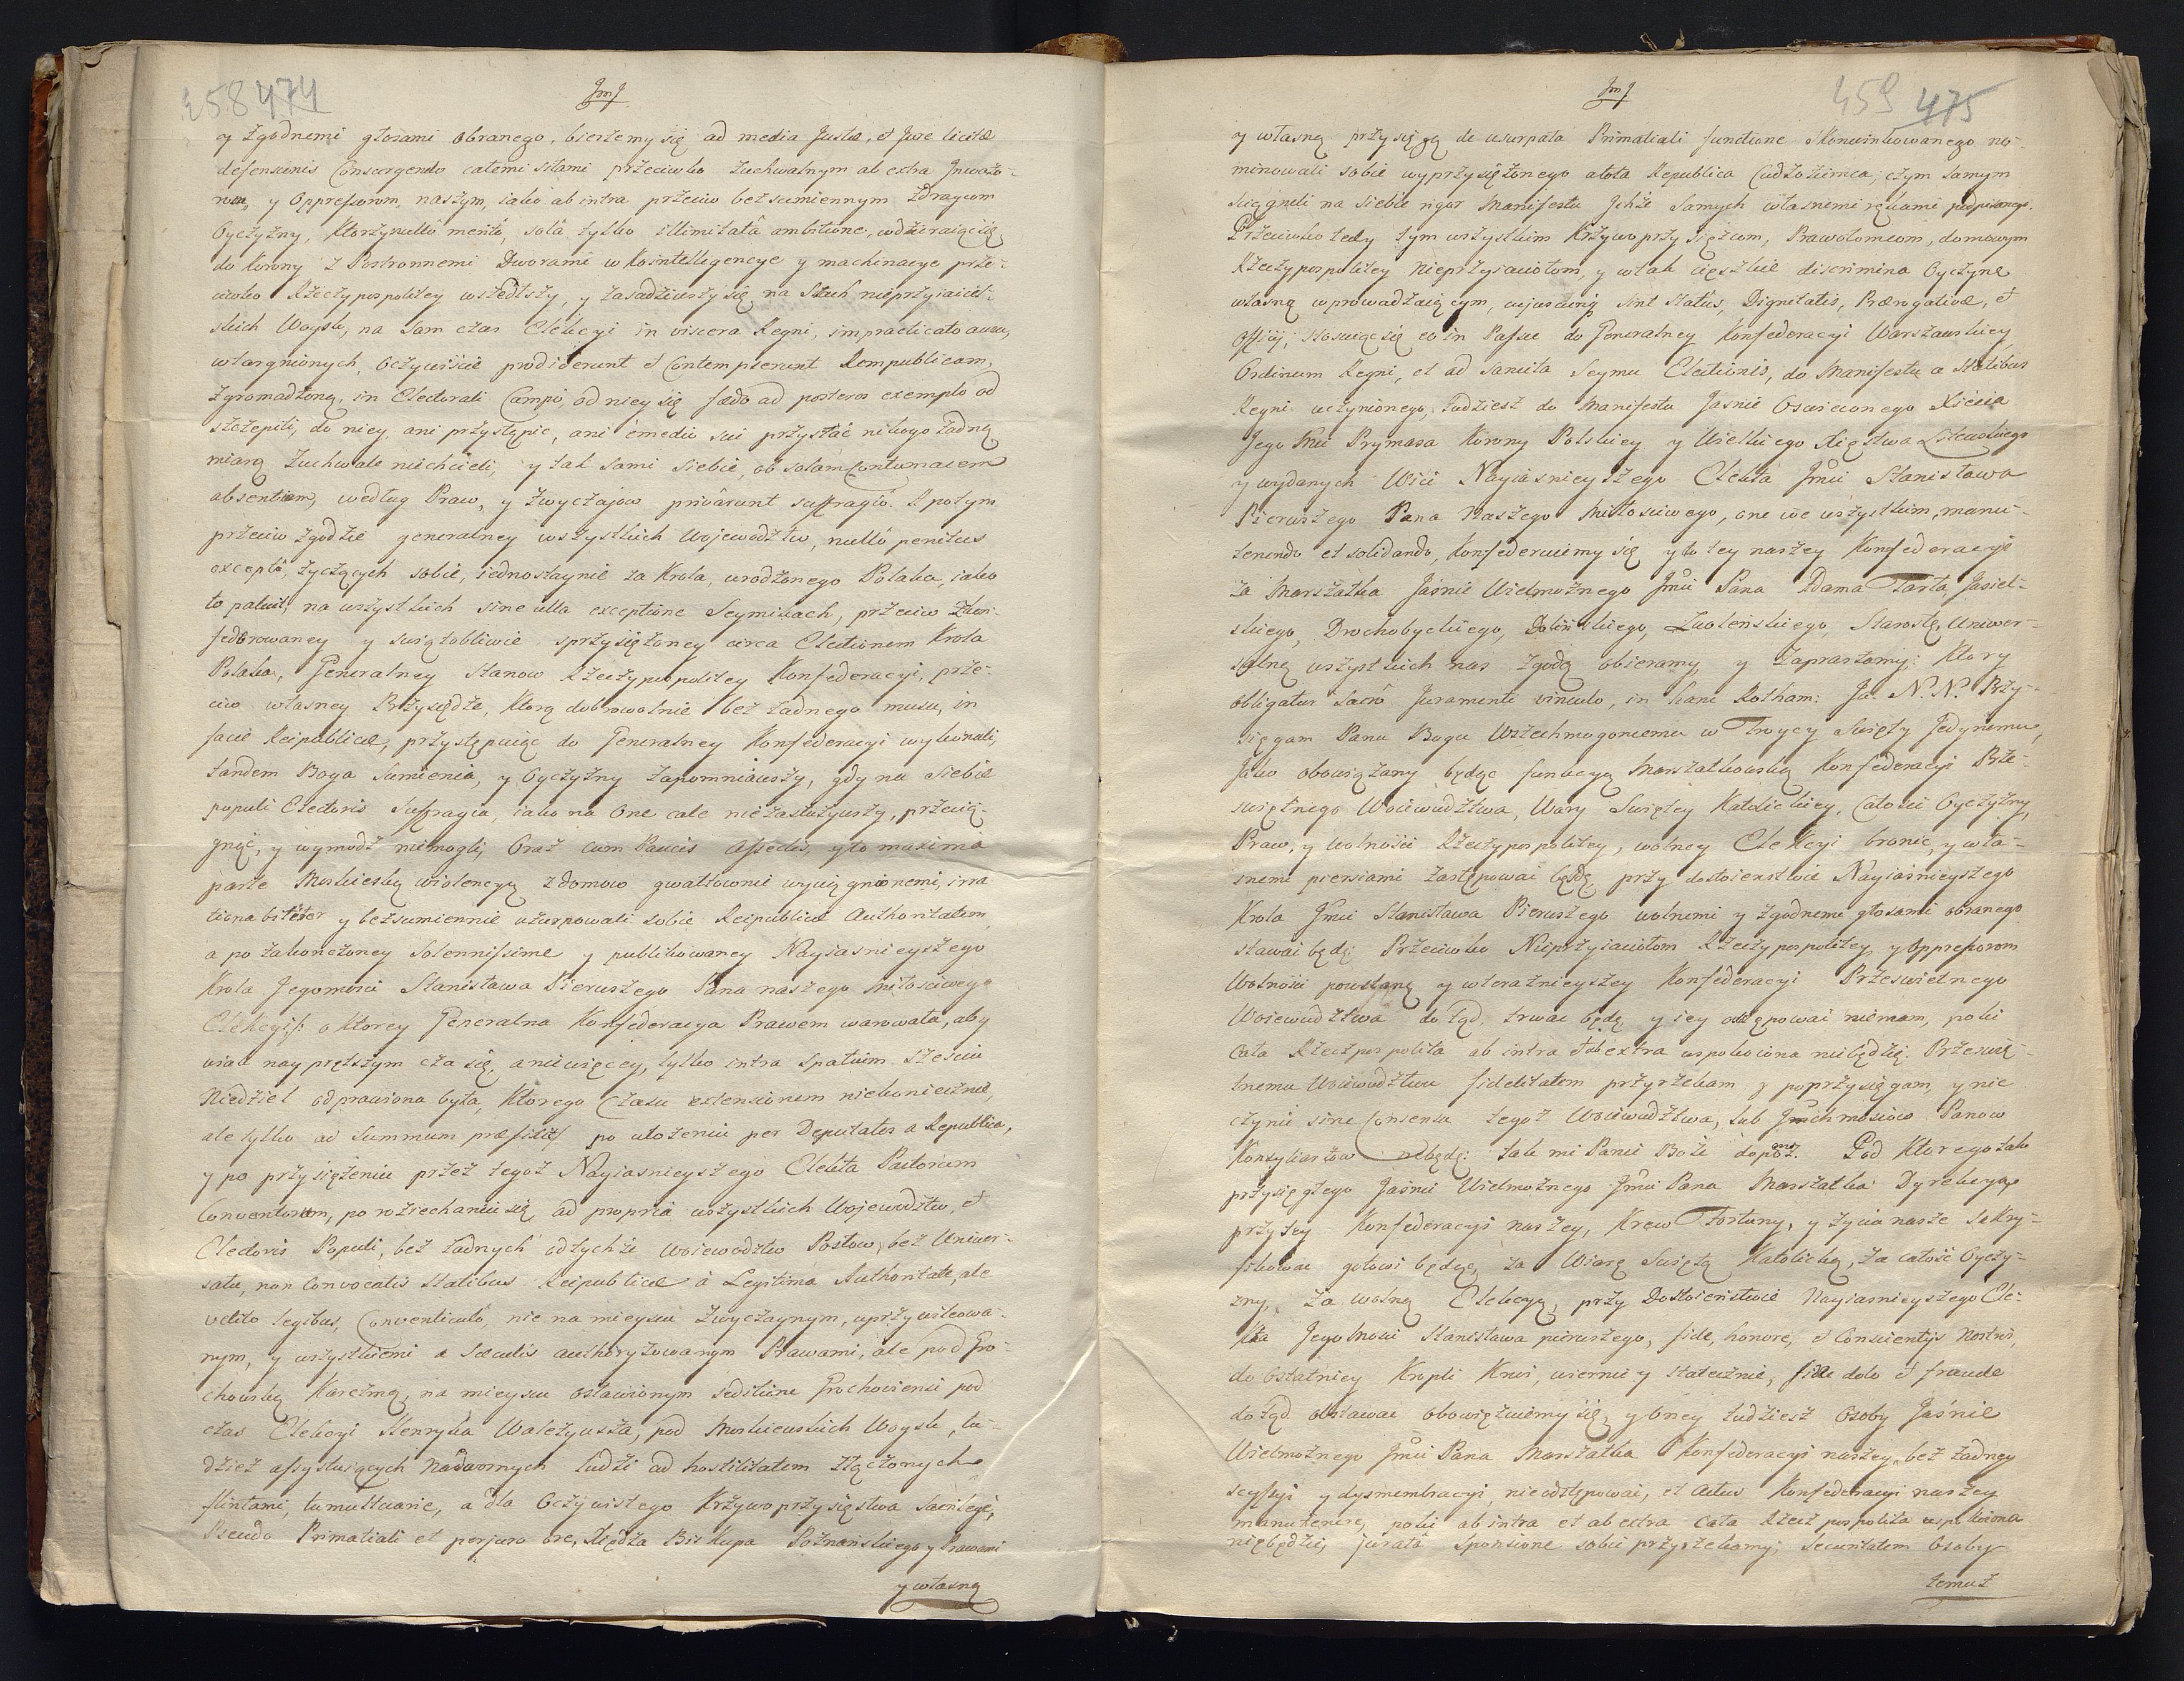 458 474
JmJ
y zgodnemi głosami obranego, bierzemy się ad media Justa, et Jure licitæ
defensionis Consurgendo całemi siłami przeciwko zuchwałnym ab extra Jnwazo-
rom, y Oppressorom, naszym, iako ab intra przeciw bez sumiennym Zdraycom
Oyczyzny, Ktorzy nullô meritô, solâ tylko illimitatâ ambitione, wdzieraiąc się
do Korony z Postronnemi Dworami w Kointelligencye y machinacye prze-
ciwko Rzeczypospolitey wszedłszy, y zasadziwszy się na Siłach nieprzyiaciel-
skich Woysk, na Sam czas Elekcyi in viscera Regni, impracticato ausu,
wtargnionych, Oczywiście prodiderunt et Contempserunt Rempublicam,
zgromadzoną, in Electorali Campo, od niey się fædo ad posteros exemplo od
szczepili, do niey, ani przystąpic, ani è medio sui przysłać nikogo żadną
miarą zuchwale niechcieli, y tak sami siebie, ob solam Contumacem
absentiam, według Praw, y zwyczajow privârunt suffragiô. A potym
przeciw zgodzie generalney wszystkich Wojewodztw, nullô penitus
exceptô, życzących sobie, iednostaynie za Krola, urodzonego Polaka, iako
to patuit, na wszystkich sine ulla exceptione Seymikach, przeciw Skon-
federowaney y świątobliwie sprzysiężoney circa Electionem Krola
Polaka, Generalney Stanow Rzeczypospolitey Konfederacyi, prze-
ciw własney Przysiędze, Ktorą dobrowolnie bez żadnego musu, in
facie Reipublicæ, przystępuiąc do Generalney Konfederacyi wykonali,
tandem Boga Sumienia, y Oyczyzny zapomniawszy, gdy na siebie
populi Electoris Suffragia, iako na One cale nie zasłużywszy, przecią-
gnąć, y wymodz niemogli, Oraz cum Paucis Asseclis, y to maxima
parte Moskieską wiolencyą z domow gwałtownie wyciągnionemi, irra
tionabiliter y bezsumiennie uzurpowali sobie Reipublicæ Authoritatem,
a po zakończoney Solennissime y publikowaney Nayiasnieyszego
Krola Jegomosci Stanisława Pierwszego Pana naszego Miłosciwego
Elekcyi /: o ktorey Generalna Konfederacya Prawem warowała, aby
iak nayprętszym cza się, a niewięcey, tylko intra Spatium Sześciu
Niedziel odprawiona była, Ktorego Czasu extensionem niekoniecznie,
ale tylko ad Summum præfixit :/ po ułożeniu per Deputatos a Republica,
y po przysiężeniu przez tegoż Nayiasnieyszego Elekta Pactorum
Conventorum, po roziechaniu się ad propria wszystkich Wojewodztw, et
Electoris Populi, bez żadnych od tychże Woiewodztw Posłow, bez Uniwer-
sału, non Convocatis Statibus Reipublicæ à Legitima Authoritate, ale
vetito legibus, Conventiculô, nie na mieyscu zwyczaynym, uprzywileowa-
nym, y wszystkiemi a Sæculis authoryzowanym Prawami, ale pod Gro-
chowską Karczmą, na mieyscu osławionym seditione Grochoviensi pod
czas Elekcyi Henryka Walezyusza, pod Moskiewskich Woysk, tu-
dziez assystuiących Nadwornych ludzi ad hostilitatem złączonych
flintami, tumultuarie, a dla Oczywistego Krzywoprzysięstwa Sacrilegè,
Pseudo Primatiali et perjuro ore, Xiędza Biskupa Poznańskiego y Prawami
y własną
459 475
JmJ
y własną przysięgą de usurpata Primatiali functione Skonwinkowanego no-
minowali sobie wyprzysiężonego a tota Republica Cudzoziemca, czym samym
ściągneli na Siebie rigor Manifestu Jchże Samych własnemi rękami podpisanego.
Przeciwko tedy tym wszystkim Krzywoprzysięzcom, Prawołomcom, domowym
Rzeczypospolitey Nieprzyiaciołom, y w tak cięszkie discrimina Oyczyznę
własną wprowadzaiącym, cujuscunq sint Statûs, Dignitatis, Prærogativæ, et
Officij, stosuiąc się eo in Passu do Generalney Konfederacyi Warszawskiey
Ordinum Regni, et ad Sancita Seymu Electionis, do Manifestu a Statibus
Regni uczynionego, tudziesz do Manifestu Jasnie Oswieconego Xięcia
Jego Mci Prymasa Korony Polskiey y Wielkiego Xięstwa Litewskiego
y wydanych Wici Nayiasnieyszego Elekta Jmci Stanisława
Pierwszego Pana Naszego Miłosciwego, one we wszystkim, manu-
tenendo et solidando, Konfederuiemy się y to tey naszey Konfederacyi
za Marszałka Jasnie Wielmożnego Jmci Pana Adama Tarła, Jasiel-
skiego, Drochobyckiego, Dolińskiego, Zwoleńskiego, Starostę, Uniwer-
salną wszystkich nas zgodą obieramy y zapraszamy: Ktory
obligatur Sacrô Juramenti vinculo, in hanc Rotham: Ja N: N: Przy-
sięgam Panu Bogu Wszechmogoncemu w Troycy Swięty Jedynemu,
Jako obowiązany będąc funkcyą Marszałkowską Konfederacyi Prze-
swiętnego Woiewudztwa, Wary Swiętey Katolickiey, Całosci Oyczyzny,
Praw, y wolności Rzeczypospolitey, wolney Elekcyi bronic, y wła-
snemi piersiami zastępowai będę, przy dostoienstwie Nayiasnieyszego
Krola Jmci Stanisława Pierwszego wolnemi y zgodnemi głosami obranego
stawai będę; Przeciwko Nieprzyiaciołom Rzeczypospolitey, y Oppressorom
Wolności powstanę y w teraznieyszey Konfederacyi Przeswietnego
Woiewudztwa dotąd, trwac będę, y iey odstępowai niemam, poki
Cała Rzeczpospolita ab intra et ab extra uspokoiona niebędzie. Przeswię-
tnemu Woiewudztwu fidelitatem przyrzekam y poprzysięgam, y nic
czynic sine Consensu tegoż Woiewudztwa, lub Jmchmosciow Panow
Konsyliarzow niebędę: tak mi Panie Boże dopomoż. Pod Ktorego tak
przysięgłego Jasnie Wielmożnego Jmci Pana Marszałka Dyrekcyą
przy tey Konfederacyi naszey, Krew Fortuny, y życia nasze Sakry-
fikowac gotowi będąc, za Wiarę Swiętą Katolicką, za całość Oyczy-
zny, za wolną Elekcyą, przy Dostoieństwie Nayiasnieyszego Ele-
kta Jegomosci Stanisława pierwszego, fide, honore, et Conscientijs Nostris,
do Ostatniey Kropli Krwi, wiernie y statecznie, sine dolo et fraude
dotąd obstawac obowięzuiemy się, y Oney tudziesz Osoby Jaśnie
Wielmożnego Jmci Pana Marszałka Konfederacyi naszey, bez żadney
scyssyi y dysmembracyi, nieodstępowai, et Actus Konfederacyi naszey
manutenere, poki ab intra et ab extra Cała Rzeczpospolita uspokoiona
niebędzie, juratâ Sponsione sobie przyrzekamy; Securitatem Osoby
temuż